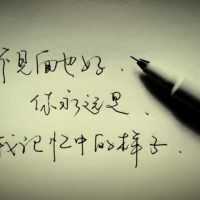 不见面也好.
你永远是.
我记忆中的样子.